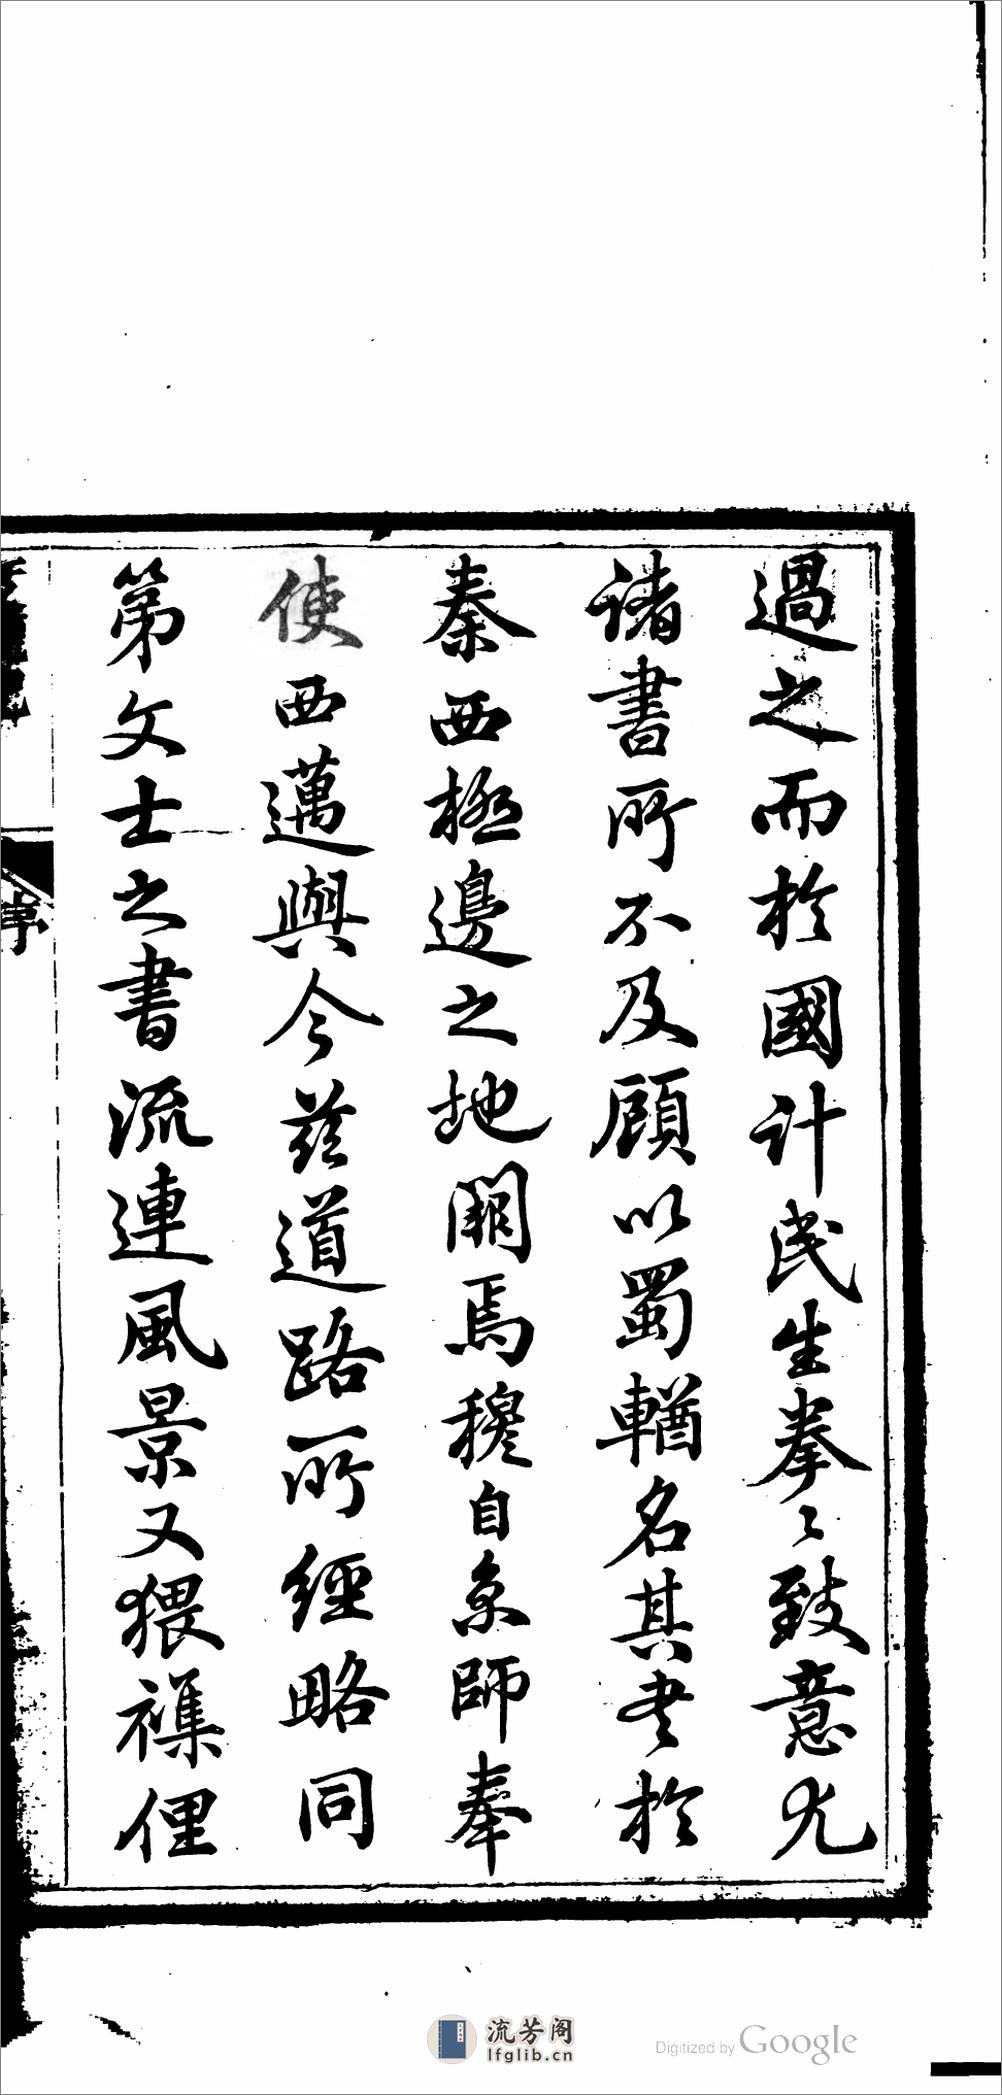 過之而於國計民生拳〻致意尤
諸書所不及顧以蜀輶名其書於
秦西極邊之地闕焉穆自京師奉
使西邁與今茲道路所經略同
第文士之書流連風景又猥襍俚
序
流芳阁
lfglib.cn
Digitized by Google